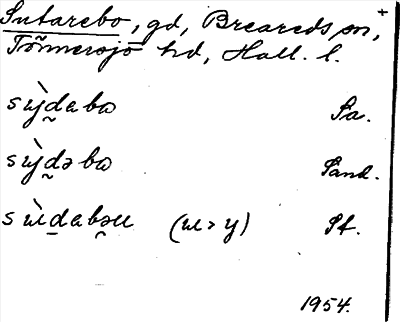 Sutarebo, gd, Breareds sn, +
Tönnersjö hd, Hall. l.
sẁy̆d̰abω Sa.
sẁy̆d̰əbω Sand.
sẁɯd̰abə̰ɯ (ɯ > y) St.
1954.